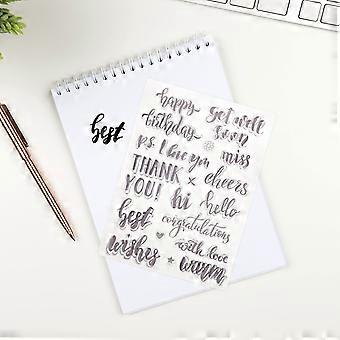 best
happy
birthday
get well
soon
ps I love you
miss
THANK
YOU!
x
cheers
hi
hello
best
wishes
congratulations
with love
warm